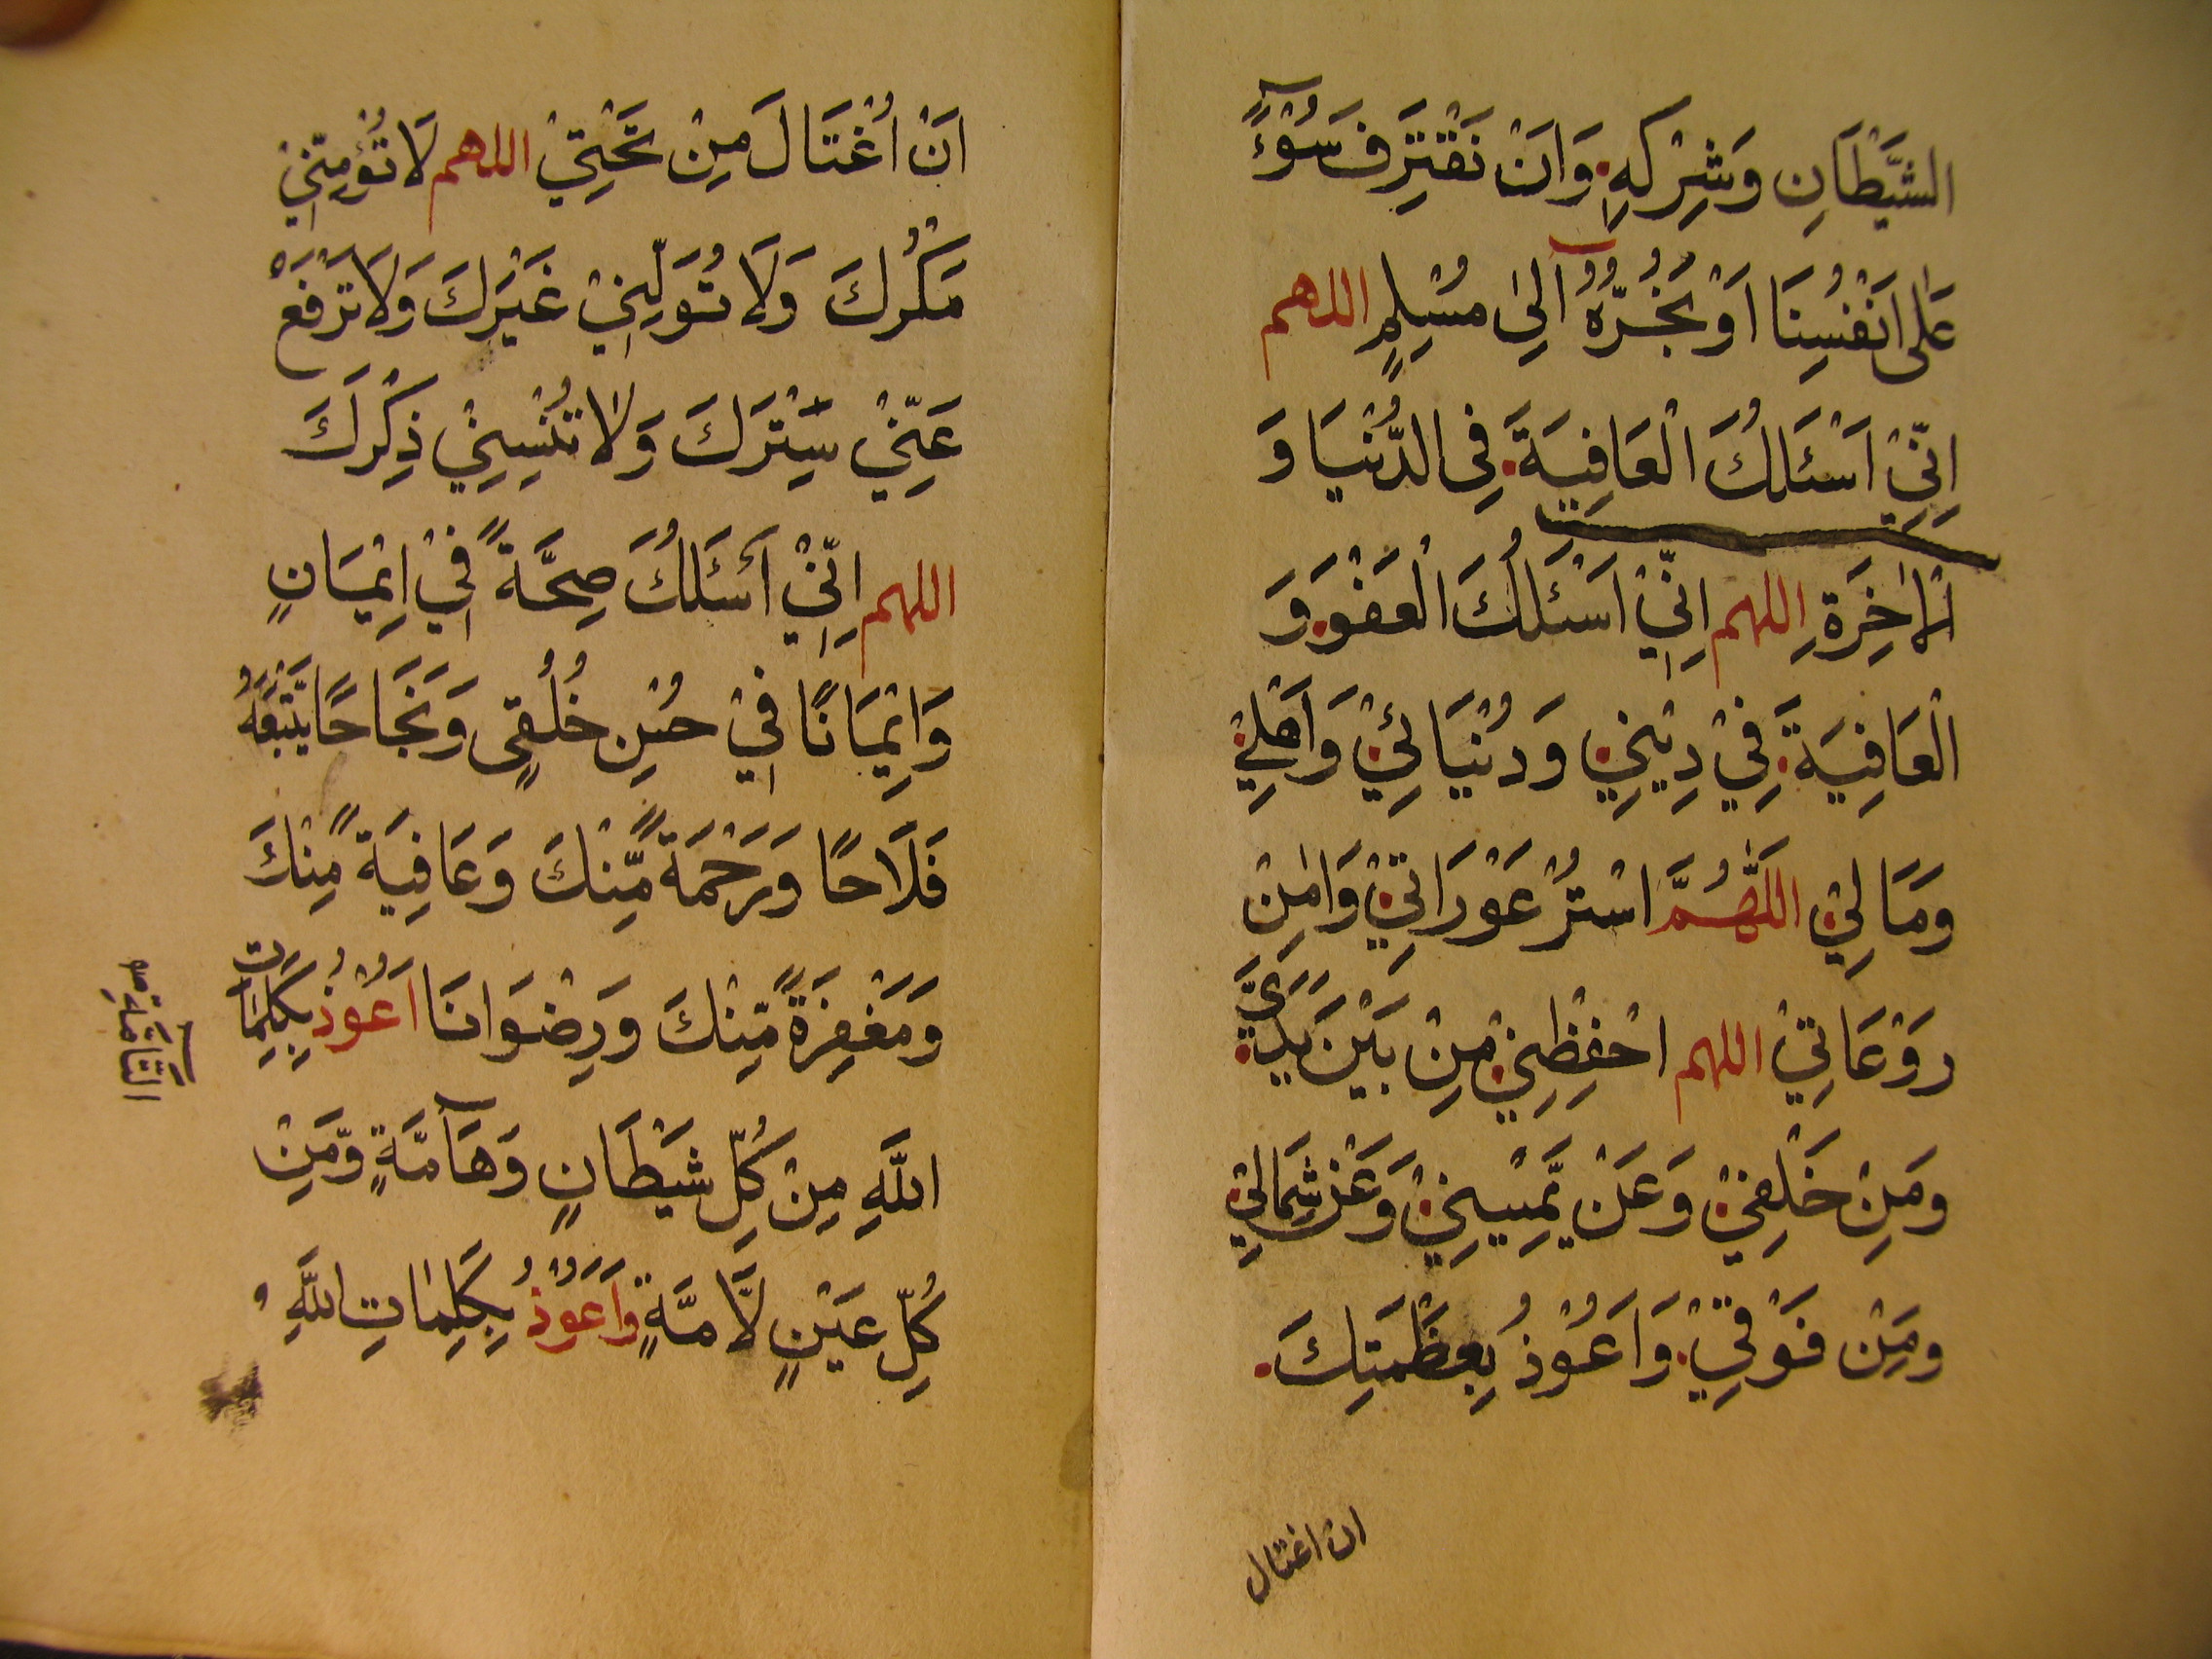 الشَّيْطَانِ وَشِرْكِهِ وَاَنْ نَقْتَرِفَ سُوْءً
عَلٰى اَنْفُسِنَا اَوْ نَجُرُّهُ اِلٰى مُسْلِمٍ اللهم
اِنِّيْ اَسْئَلُكَ الْعَافِيَةَ فِى الدُّنْيَا وَ
الْاٰخِرَةِ اللهم اِنِّيْ اَسْئَلُكَ الْعَفْوَ وَ
الْعَافِيَةَ فِيْ دِيْنِيْ وَدُنْيَائِيْ وَاَهْلِيْ
وَمَالِيْ اَللّٰهُمَّ اسْتُرْ عَوْرَاتِيْ وَاٰمِنْ
رَوْعَاتِيْ اللهم احْفِظْنِيْ مِنْ بَيْنِ يَدَيَّ
وَمِنْ خَلْفِيْ وَعَنْ يَّمِيْنِيْ وَعَنْ شِمَالِيْ
وَمِنْ فَوْقِيْ وَاَعُوْذُ بِعَظْمَتِكَ
ان اغتال
اَنْ اُغْتَالَ مِنْ تَحْتِيْ اللهم لَا تُؤْمِنِّيْ
مَكْرَكَ وَلَا تُوَلِّنِيْ غَيْرَكَ وَلَا تَرْفَعْ
عَنِّيْ سِتْرَكَ وَلَا تُنْسِنِيْ ذِكْرَكَ
اللهم اِنِّيْ اَسْئَلُكَ صِحَّةً فِيْ اِيْمَانٍ
وَاِيْمَانًا فِيْ حُسْنِ خُلُقٍ وَنَجَاحًا يَتْبَعُهُ
فَلَاحًا وَرَحْمَةً مِّنْكَ وَعَافِيَةً مِنْكَ
وَمَغْفِرَةً مِّنْكَ وَرِضْوَانَا اَعُوْذُ بِكَلِمَاتِ
اللّٰهِ مِنْ كُلِّ شَيْطَانٍ وَهَآمَّةٍ وَّمِنْ
كُلِّ عَيْنٍ لَّامَّةٍ وَاَعُوْذُ بِكَلِمَاتِ اللّٰهِ
التَّآمَّةِ